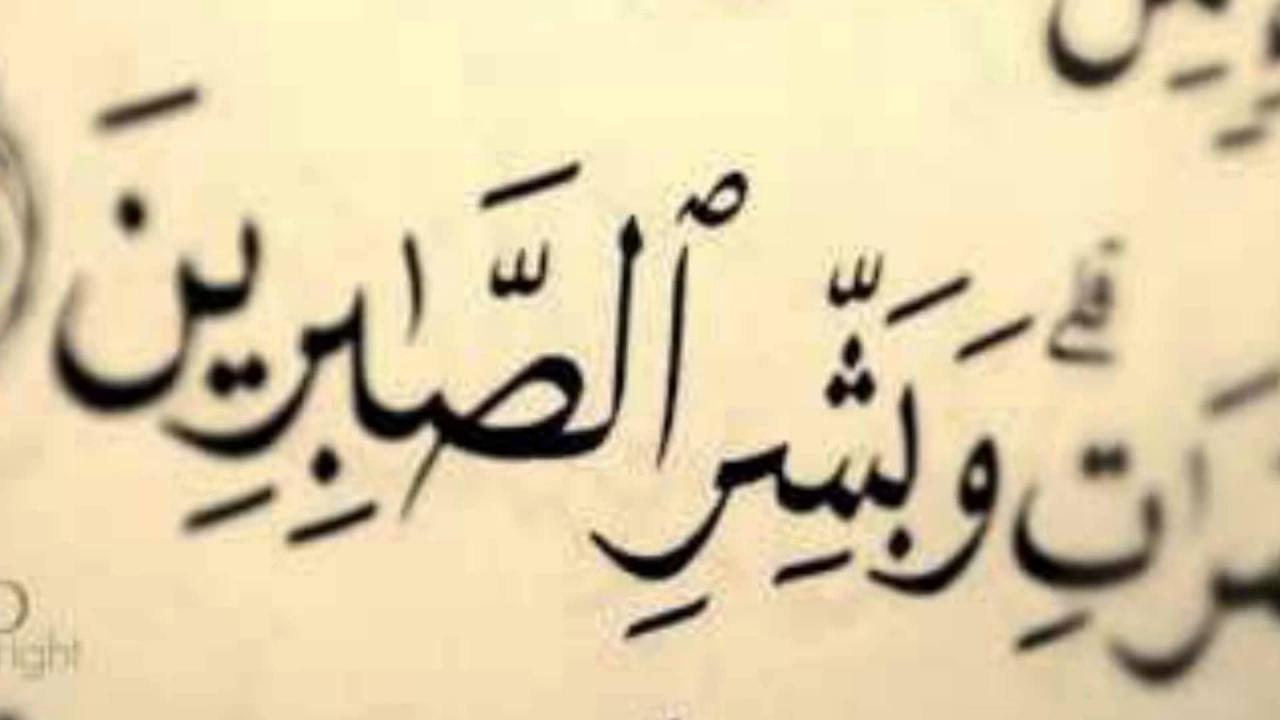 ٰتِۗ وَبَشِّرِ ٱلصَّٰبِرِينَ
right